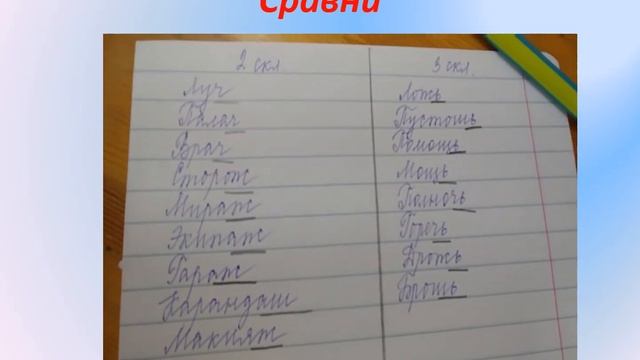 Сравни
2 скл.
Луч
Палач
Врач
Сторож
Мираж
Экипаж
Гараж
Карандаш
Макияж
3 скл.
Ложь
Пустошь
Помощь
Мощь
Полночь
Горечь
Дрожь
Брошь